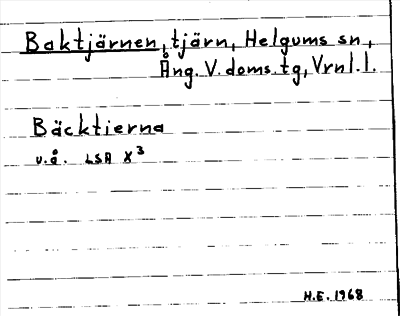 Baktjärnen, tjärn, Helgums sn,
Ång. V. doms. tg, Vrnl. l.
Bäcktierna
u.å. LSA X3
H.E. 1968